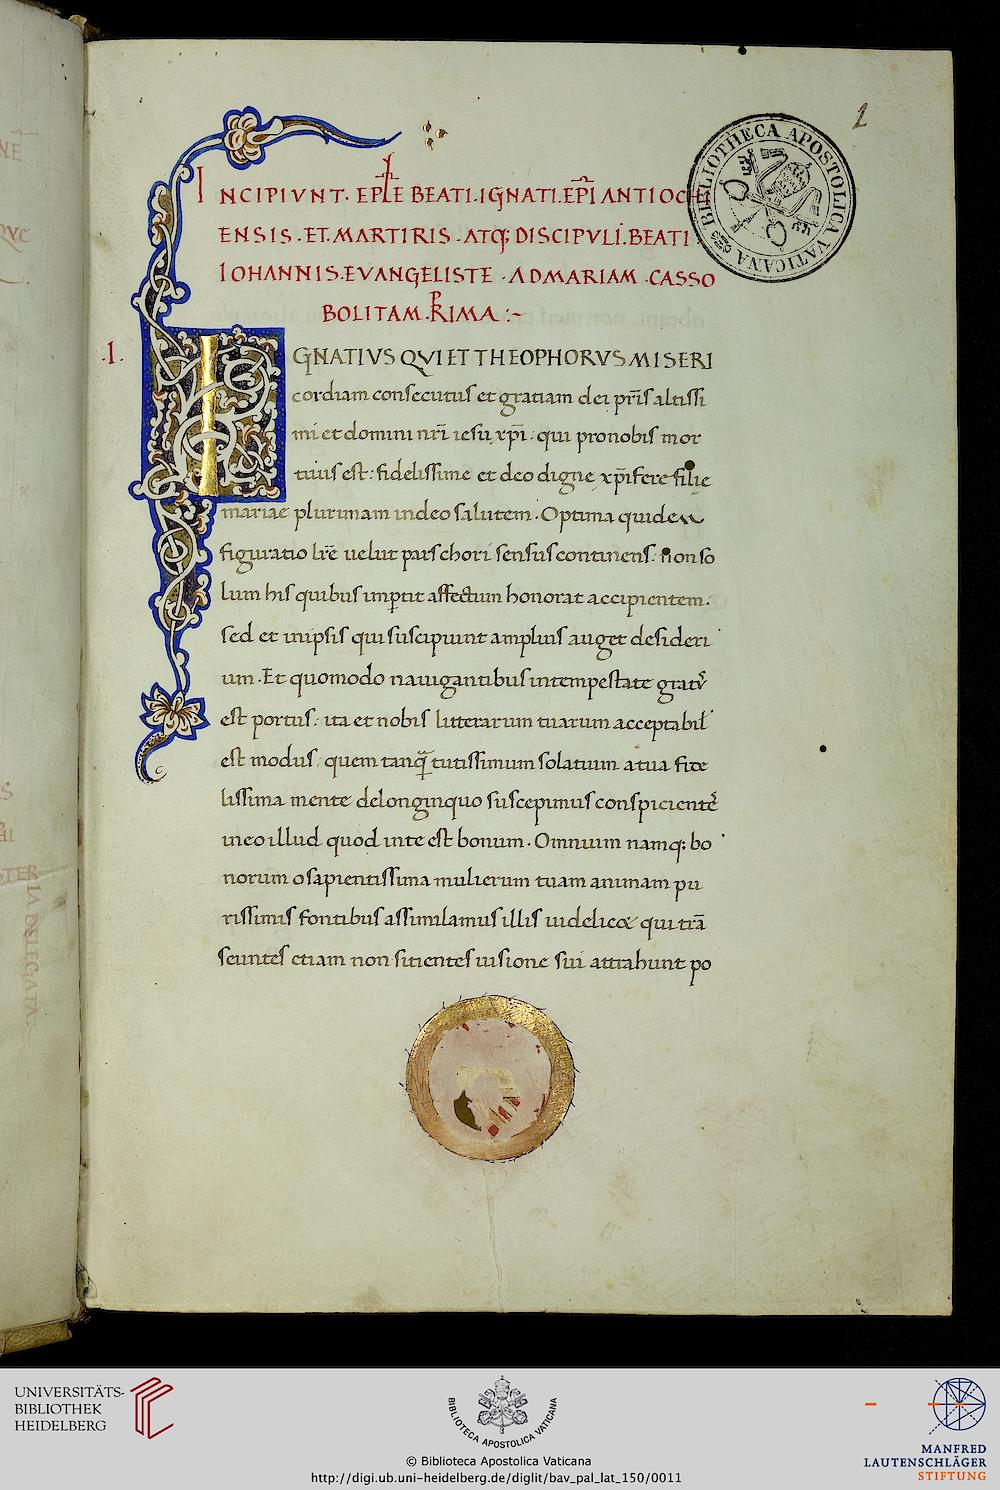 1
INCIPIVNT. EPL̅E BEATI.IGNATI.EP̅I ANTIOCH
ENSIS.ET.MARTIRIS.ATQ; DISCIPVLI.BEATI
IOHANNIS.EVANGELISTE.ADMARIAM.CASSO
BOLITAM.PRIMA:~
.I.
IGNATIVS QVI ET THEOPHORVS MISERI
cordiam consecutus et gratiam dei pr̅is altissi
mi et domini nr̅i iesu xp̅i: qui pronobis mor
tuus est: fidelissime et deo digne xp̅ifere filie
mariae plurimam indeo salutem. Optima quidem
figuratio lr̅e uelut pars chori sensus continens. non so
lum his quibus imp̱tit affectum honorat accipientem.
sed et inipsis qui suscipiunt amplius auget desideri
um. Et quomodo nauigantibus intempestate gratꝰ
est portus: ita et nobis litterarum tuarum acceptabil'
est modus: quem tanq̅ tutissimum solatium atua fide
lissima mente delonginquo suscepimus conspiciente̅
ineo illud quod inte est bonum. Omnium namq; bo
norum o sapientissima mulierum tuam animam pu
rissimis fontibus assimilamus illis uidelicet qui tra̅
seuntes etiam non sitientes uisione sui attrahunt po
BIBLIOTHECA APOSTOLICA VATICANA
UNIVERSITÄTS-
BIBLIOTHEK
HEIDELBERG
BIBLIOTECA APOSTOLICA VATICANA
© Biblioteca Apostolica Vaticana
http://digi.ub.uni-heidelberg.de/diglit/bav_pal_lat_150/0011
MANFRED
LAUTENSCHLÄGER
STIFTUNG